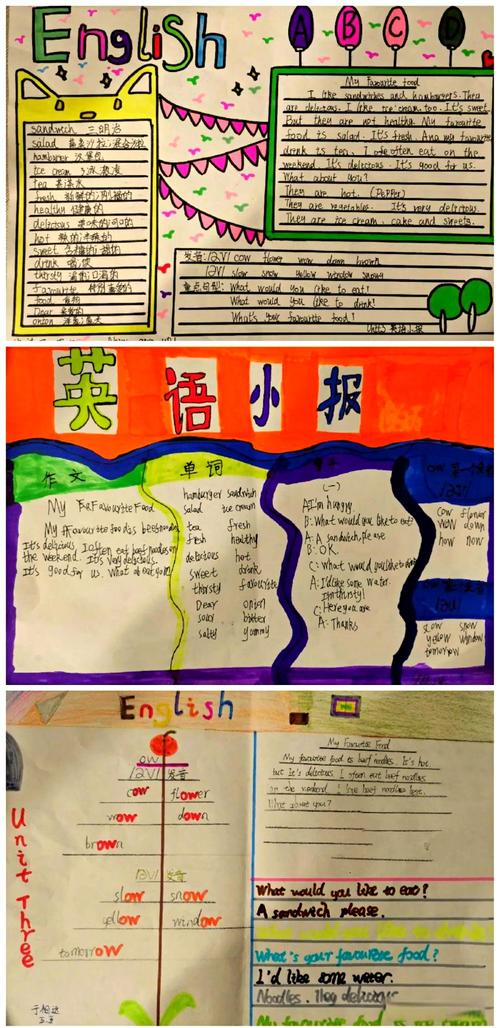 English
A B C D
sandwich 三明治
salad
hamburger 汉堡包
ice cream 冰淇凌
Tea 茶;茶水
fresh 新鲜的;刚摘的
healthy 健康的
delicious 美味的;可口的
hot 辣的;辣味的
sweet 含糖的;甜的
drink 喝;饮
thirsty 渴的;口渴的
favourite 特别喜爱的
food 食物
Dear 亲爱的
onion 洋葱;葱头
My Favourite food
I like sandwiches and hamburgers. They
are delicious. I like ice cream too. It's sweet.
But they are not healthy. My favourite
food is salad. It's fresh. And my favourite
drink is tea. I often eat on the
weekend. It's delicious. It's good for us.
What about you?
They are hot. (Pepper)
They are vegetables. It's very delicious.
They are ice cream, cake and sweets.
发音: /aʊ/ cow flower wow down brown
/əʊ/ slow snow yellow window snowy
重点句型: What would you like to eat?
What would you like to drink?
What's your favourite food?
Unit3 英语小报
英语小报
作文
My Favourite Food
My ffavourite food is beef noodles.
It's delicious, I often eat beef noodles on
the weekend. It's very delicious.
It's good for us. What about you?
单词
hamburger sandwich
salad ice cream
tea fresh
fresh healthy
delicious hot
sweet drink
thirsty favourite
Dear onion
sour bitter
salty yummy
(一)
A: I'm hungry.
B: What would you like to eat?
A: A sandwich, please
B: OK.
C: What would you like to drink?
A: I'd like some water.
I'm thirsty!
C: Here you are
A: Thanks
cow flower
wow down
how now
slow snow
yellow window
tomorrow
English
Unit Three
ow
发音
cow flower
wow down
brown
发音
slow snow
yellow window
tomorrow
My Favourite Food
My favourite food is beef noodles. It's hot,
but it's delicious. I often eat beef noodles
on the weekend. I love beef noodles best.
What about you?
What would you like to eat?
A sandwich please.
What would you like to drink?
What's your favourite food?
I'd like some water.
Noodles. They delicious
My favourite food